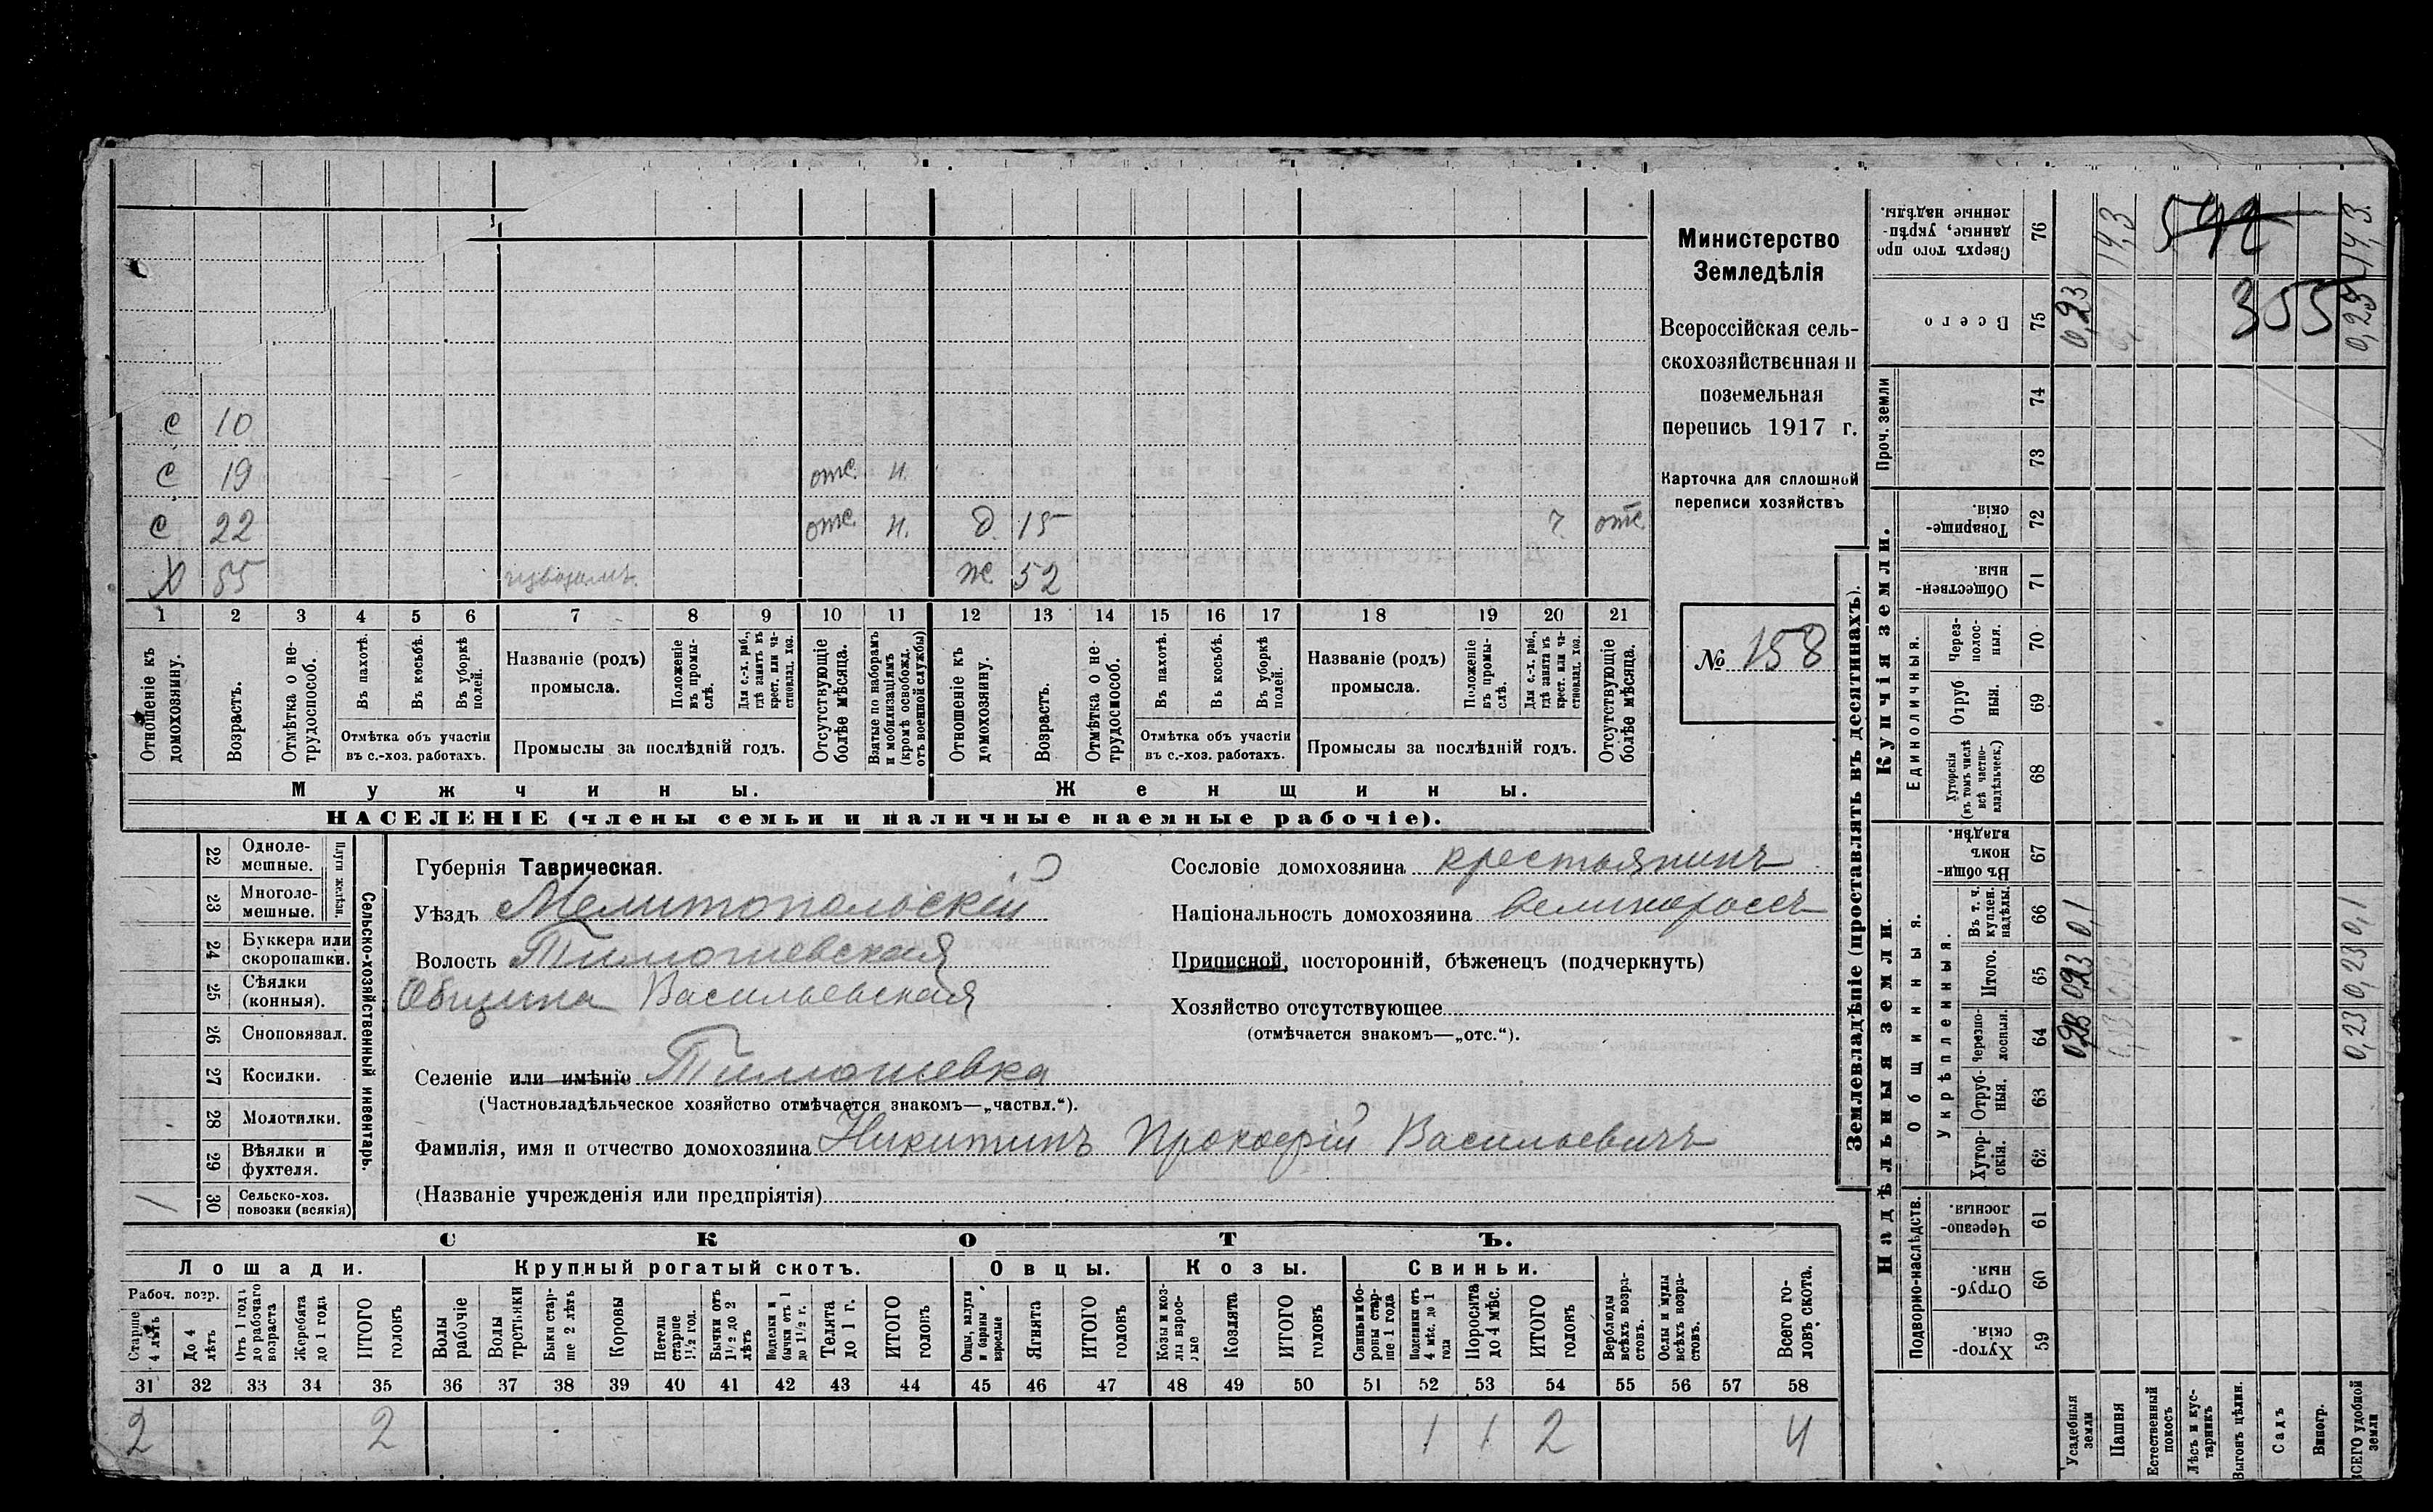 с 10
с 19 отс. н.
с 22 отс. н. д. 15 ? отс.
х 55 извозомъ. ж. 52
1 2 3 4 5 6 7 8 9 10 11 12 13 14 15 16 17 18 19 20 21
Отношеніе къ домохозяину.
Возрастъ.
Отмѣтка о нетрудоспособ.
Въ пахотѣ.
Въ косьбѣ.
Въ уборкѣ полей.
Отмѣтка объ участіи въ с.-хоз. работахъ.
Названіе (родъ) промысла.
Положеніе въ промыслѣ.
Для с.-х. раб., гдѣ занятъ въ крест. или частновлад. хоз.
Промыслы за послѣдній годъ.
Отсутствующіе болѣе мѣсяца.
Взятые по наборамъ и мобилизаціямъ (кромѣ освобожд. отъ военной службы)
Отношеніе къ домохозяину.
Возрастъ.
Отмѣтка о нетрудоспособ.
Въ пахотѣ.
Въ косьбѣ.
Въ уборкѣ полей.
Отмѣтка объ участіи въ с.-хоз. работахъ.
Названіе (родъ) промысла.
Положеніе въ промыслѣ.
Для с.-х. раб., гдѣ занята въ крест. или частновлад. хоз.
Промыслы за послѣдній годъ.
Отсутствующіе болѣе мѣсяца.
Мужчины.
Женщины.
НАСЕЛЕНІЕ (члены семьи и наличные наемные рабочіе).
Министерство
Земледѣлія
Всероссійская сель-
скохозяйственная и
поземельная
перепись 1917 г.
Карточка для сплошной
переписи хозяйствъ
№ 158
22 Однолемешные.
23 Многолемешные.
Плуги желѣзн.
24 Буккера или скоропашки.
25 Сѣялки (конныя).
26 Сноповязал.
27 Косилки.
28 Молотилки.
29 Вѣялки и фухтеля.
30 Сельско-хоз. повозки (всякія) 1
Сельско-хозяйственный инвентарь.
Губернія Таврическая.
Уѣздъ Мелитопольскій
Волость Тимошевская
Община Васильевская
Селеніе или имѣніе Тимошевка
(Частновладѣльческое хозяйство отмѣчается знакомъ—„частвл.“).
Фамилія, имя и отчество домохозяина Никитинъ Прокофій Васильевичъ
(Названіе учрежденія или предпріятія)
Сословіе домохозяина крестьянинъ
Національность домохозяина великороссъ
Приписной, посторонній, бѣженецъ (подчеркнуть)
Хозяйство отсутствующее
(отмѣчается знакомъ—„отс.“).
СКОТЪ.
Лошади.
Крупный рогатый скотъ.
Овцы.
Козы.
Свиньи.
Рабоч. возр.
Старше 4 лѣтъ
До 4 лѣтъ
Отъ 1 года до рабочаго возраста
Жеребята до 1 года
ИТОГО головъ
Волы рабочіе
Волы третьяки
Быки старше 2 лѣтъ
Коровы
Нетели старше 1½ год.
Бычки отъ 1½ до 2 лѣтъ
Подтелки и бычки отъ 1 до 1½ г.
Телята до 1 г.
ИТОГО головъ
Овцы, валухи и бараны взрослые
Ягнята
ИТОГО головъ
Козы и козлы взрослые
Козлята
ИТОГО головъ
Свиньи и боровы старше 1 года
Подсвинки отъ 4 мѣс. до 1 года
Поросята до 4 мѣс.
ИТОГО головъ
Верблюды всѣхъ возрастовъ.
Ослы и мулы всѣхъ возрастовъ.
Всего головъ скота.
31 32 33 34 35 36 37 38 39 40 41 42 43 44 45 46 47 48 49 50 51 52 53 54 55 56 57 58
2 2 1 1 2 4
Землевладѣніе (проставлять въ десятинахъ).
Надѣльныя земли.
Купчія земли.
Проч. земли
Подворно-наслѣдств.
Общинныя.
Укрѣпленныя.
Единоличныя.
Сверхъ того проданные, укрѣпленные надѣлы. 76 14,3 14,3
542
Всего 75 0,23 0,23
355
74
73
Товарищескія. 72
Общественныя. 71
Черезполосныя. 70
Отрубныя. 69
Хуторскія (въ томъ числѣ всѣ частновладѣльческ.) 68
Въ общинномъ владѣн. 67
Въ т. ч. куплен. надѣлы. 66 0,1 0,1
Итого. 65 0,23 0,23
Черезполосныя. 64 0,23 0,23
Отрубныя. 63
Хуторскія. 62
Черезполосныя. 61
Отрубныя. 60
Хуторскія. 59
Усадебныя земли
Пашня
Естественный покосъ
Лѣсъ и кустарникъ
Выгонъ цѣлин.
Садъ
Виногр.
ВСЕГО удобной земли